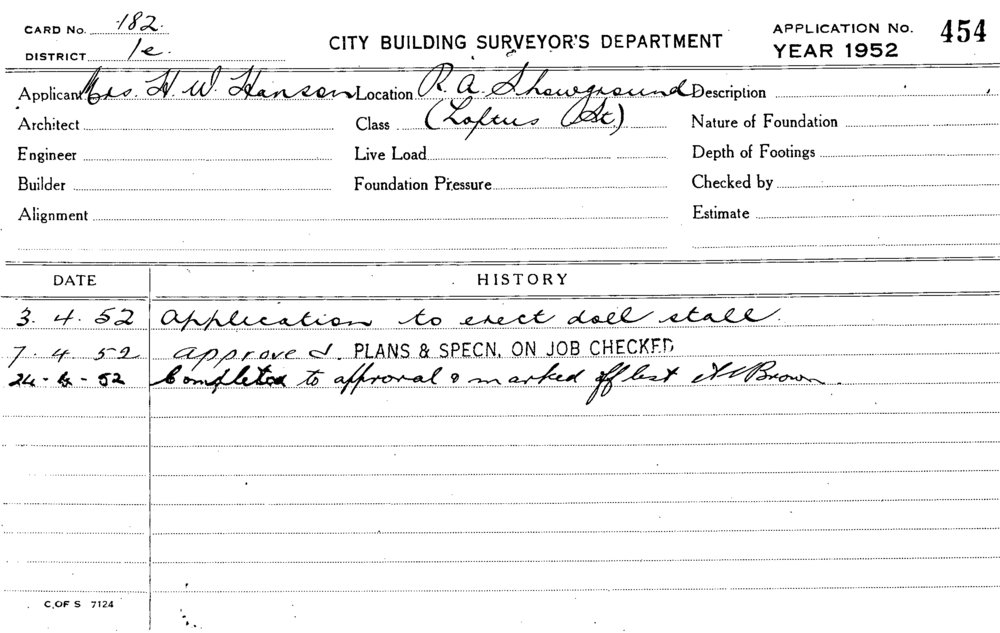 CARD No. 182.
DISTRICT 1e.
CITY BUILDING SURVEYOR'S DEPARTMENT
APPLICATION No. 454
YEAR 1952
Applicant Mrs. H. W. Hanson Location R. A. Showground Description
Architect Class (Loftus St.) Nature of Foundation
Engineer Live Load Depth of Footings
Builder Foundation Pressure Checked by
Alignment Estimate
DATE HISTORY
3. 4. 52 Application to erect doll stall.
7. 4. 52 approved. PLANS & SPECN. ON JOB CHECKED
24-4-52 Completed to approval & marked off list Brown.
C. OF S 7124